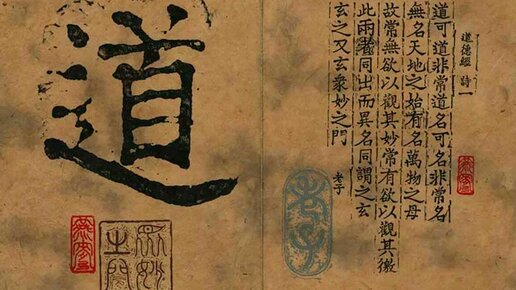 道德經 詩一
道可道非常道名可名非常名
無名天地之始有名萬物之母
故常無欲以觀其妙常有欲以觀其徼
此兩者同出而異名同謂之玄
玄之又玄衆妙之門
老子
道